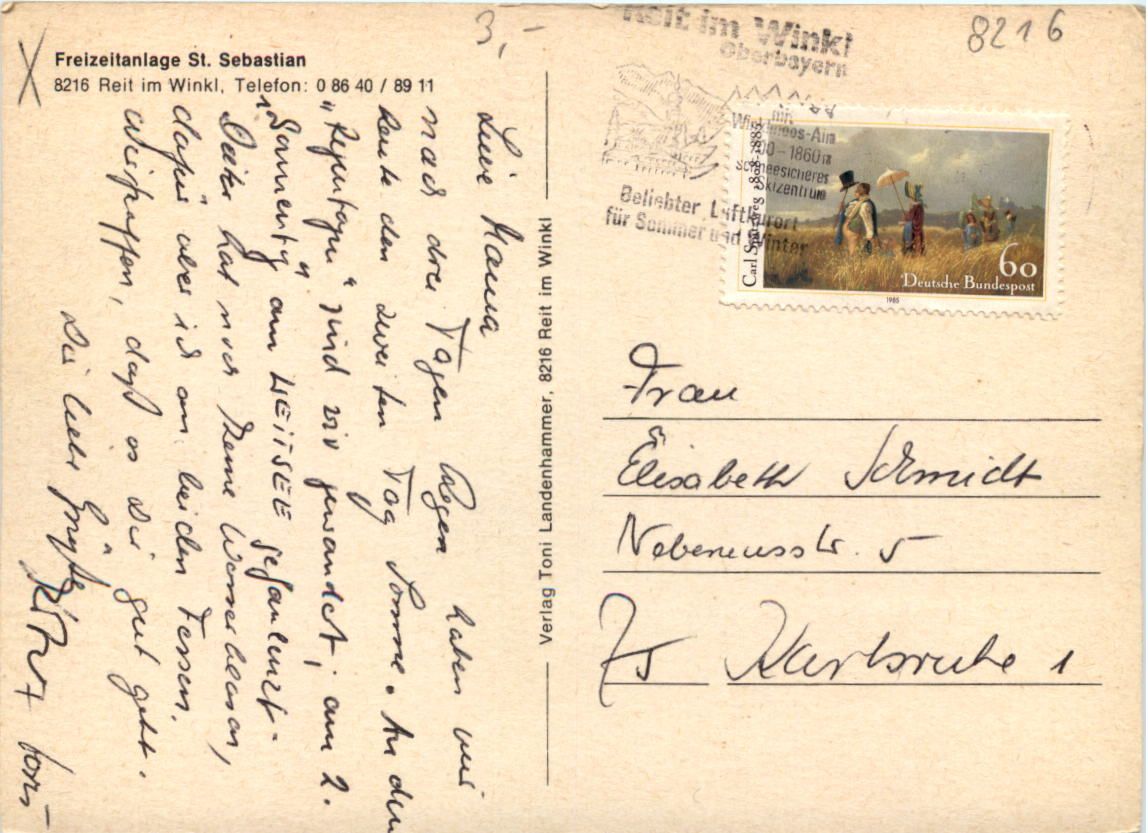 3,-
8216
Freizeitanlage St. Sebastian
8216 Reit im Winkl, Telefon: 0 86 40 / 89 11
Reit im Winkl
Oberbayern
mit
Winklmoos-Alm
700-1860 m
schneesicheres
Skizentrum
Beliebter Luftkurort
für Sommer und Winter
Carl Spitzweg 1808-1885
60
Deutsche Bundespost
1985
Liebe Mama
nach drei Tagen Regen haben wir
heute den zweiten Tag Sonne. An den
"Regentagen" sind wir gewandert, am 2.
"Sonnentag" am WEITSEE gefaulenzt.
Dieter hat nur keine Wasserblasen,
dafür aber ich an beiden Fersen.
Wir hoffen, daß es Dir gut geht.
Dir liebe Grüße
Verlag Toni Landenhammer, 8216 Reit im Winkl
Frau
Elisabeth Schmidt
Nebeniusstr. 5
75 Karlsruhe 1